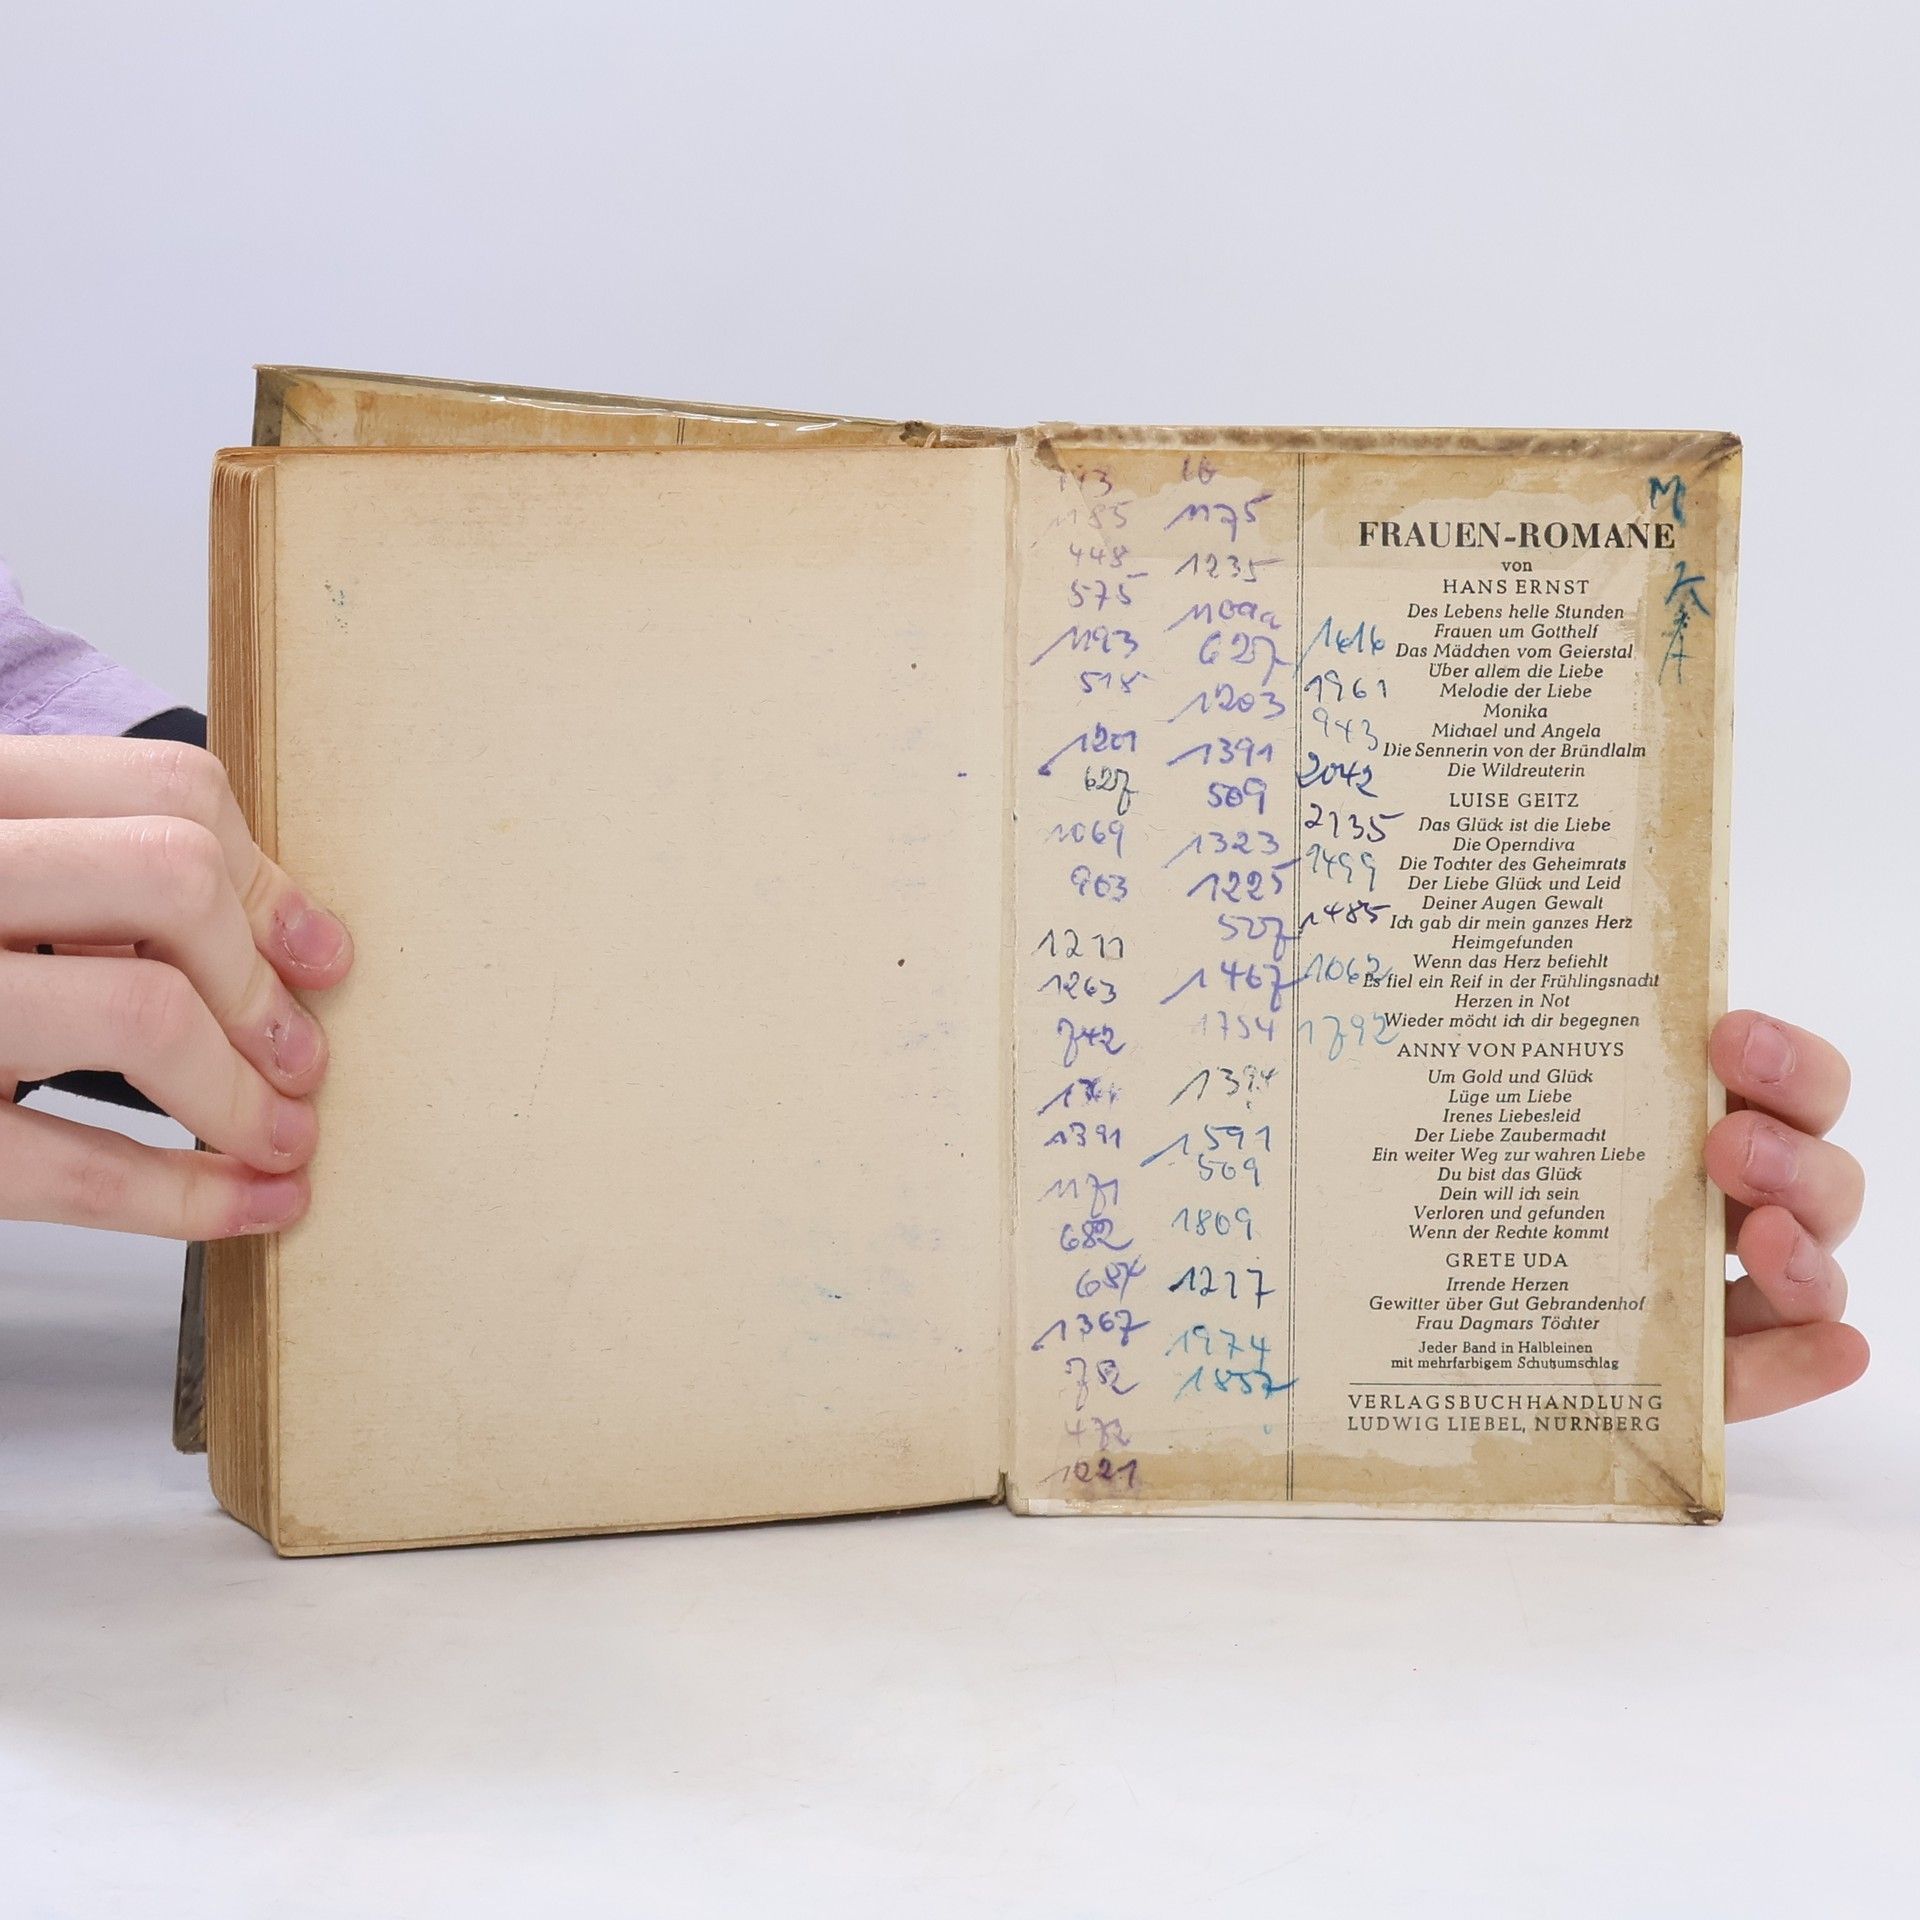 448
575
1193
518
1201
627
1069
903
1211
1263
742
1391
1171
682
1367
752
472
1021
16
1175
1235
627
1203
1391
509
1323
1225
527
1467
1754
1591
509
1809
1217
1974
1857
1616
1961
943
2042
2135
1499
1485
1062
1792
M
FRAUEN-ROMANE
von
HANS ERNST
Des Lebens helle Stunden
Frauen um Gotthelf
Das Mädchen vom Geierstal
Über allem die Liebe
Melodie der Liebe
Monika
Michael und Angela
Die Sennerin von der Bründlalm
Die Wildreuterin
LUISE GEITZ
Das Glück ist die Liebe
Die Operndiva
Die Tochter des Geheimrats
Der Liebe Glück und Leid
Deiner Augen Gewalt
Ich gab dir mein ganzes Herz
Heimgefunden
Wenn das Herz befiehlt
Es fiel ein Reif in der Frühlingsnacht
Herzen in Not
Wieder möcht ich dir begegnen
ANNY VON PANHUYS
Um Gold und Glück
Lüge um Liebe
Irenes Liebesleid
Der Liebe Zaubermacht
Ein weiter Weg zur wahren Liebe
Du bist das Glück
Dein will ich sein
Verloren und gefunden
Wenn der Rechte kommt
GRETE UDA
Irrende Herzen
Gewitter über Gut Gebrandenhof
Frau Dagmars Töchter
Jeder Band in Halbleinen
mit mehrfarbigem Schutzumschlag
VERLAGSBUCHHANDLUNG
LUDWIG LIEBEL, NÜRNBERG